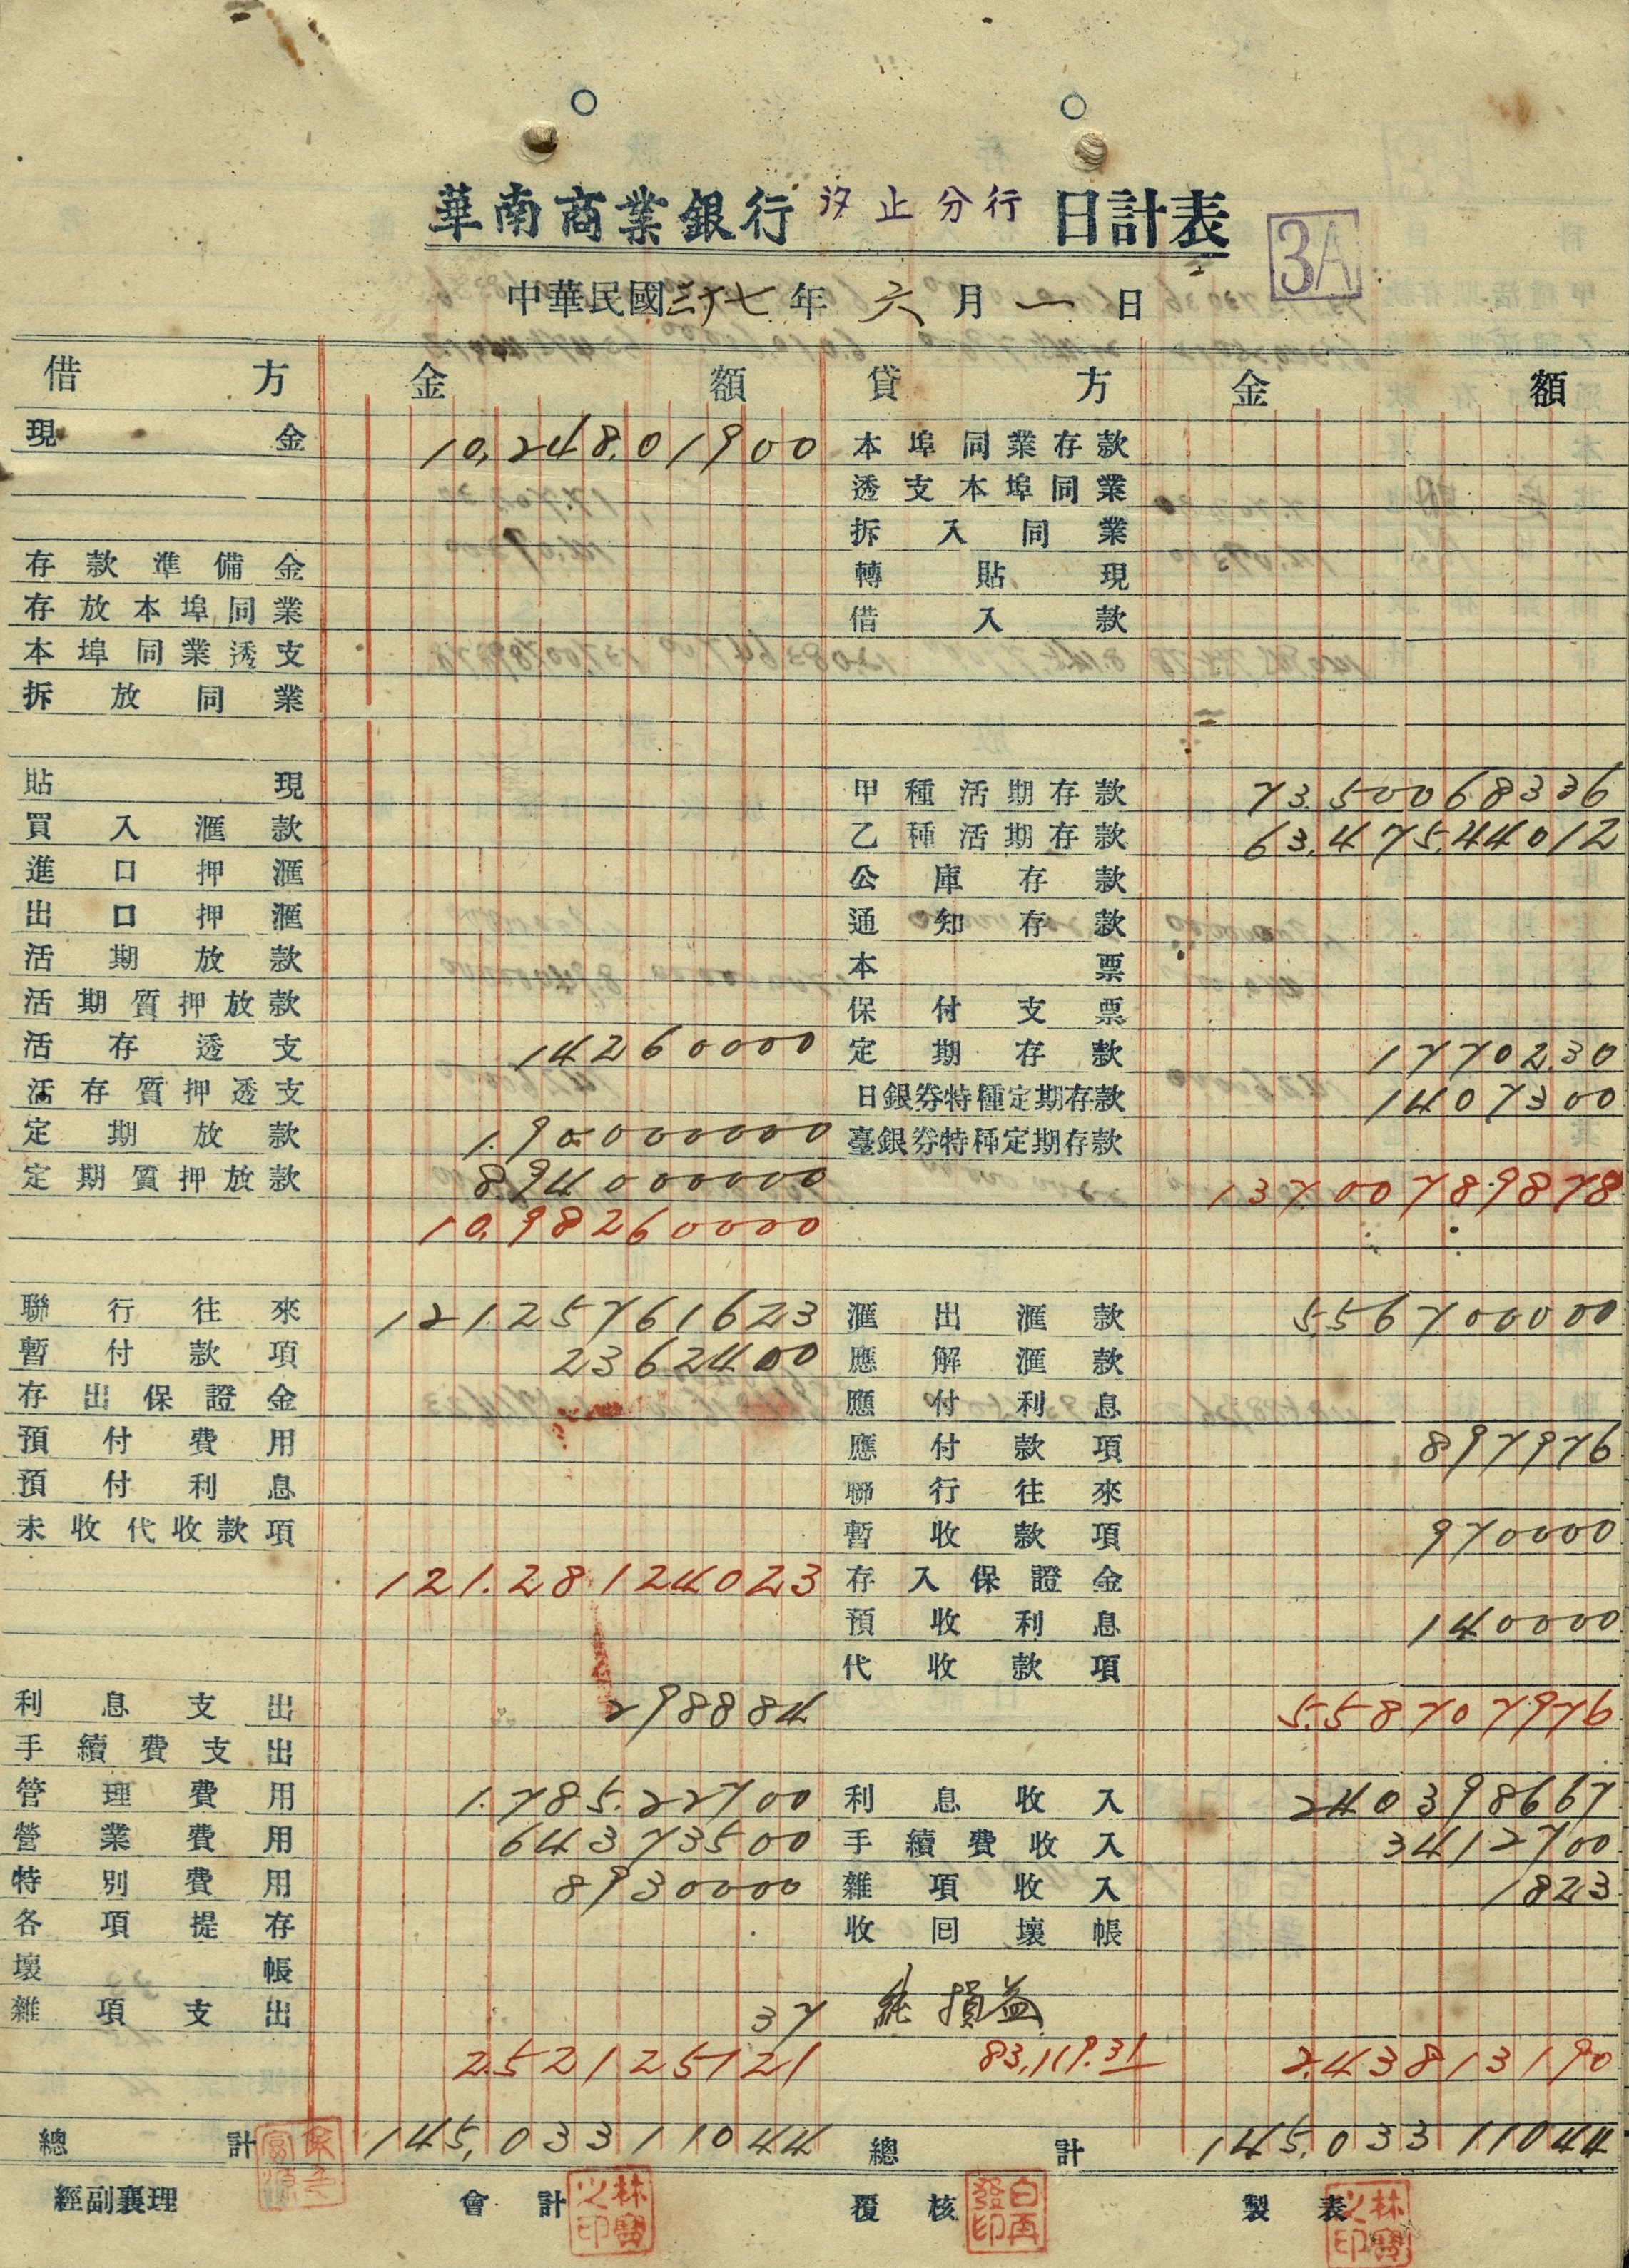 華南商業銀行 汐止分行 日計表
3A
中華民國三十七年 六月一日
借方 金額
現金 10,248,01900
存款準備金
存放本埠同業
本埠同業透支
拆放同業
貼現
買入滙款
進口押滙
出口押滙
活期放款
活期質押放款
活存透支 14260000
活存質押透支
定期放款 1.90000000
定期質押放款 894000000
10,98260000
聯行往來 12125761623
暫付款項 2362400
存出保證金
預付費用
預付利息
未收代收款項
121.28124023
利息支出 298884
手續費支出
管理費用 1.785.22700
營業費用 64373500
特別費用 8930000
各項提存
壞帳
雜項支出 37
252125121
總計 145,03311044
貸方 金額
本埠同業存款
透支本埠同業
拆入同業
轉貼現
借入款
甲種活期存款 73.50068336
乙種活期存款 63,475,44012
公庫存款
通知存款
本票
保付支票
定期存款 17702.30
日銀券特種定期存款 1407300
臺銀券特種定期存款
13700789878
滙出滙款 556700000
應解滙款
應付利息
應付款項 897976
聯行往來
暫收款項 970000
存入保證金
預收利息 140000
代收款項
5.58707976
利息收入 240398667
手續費收入 3412700
雜項收入 1823
收回壞帳
純損益
83,119.31 2,43813190
總計 145,03311044
經副襄理 會計 覆核 製表
林寶之印 白再發印 林寶之印